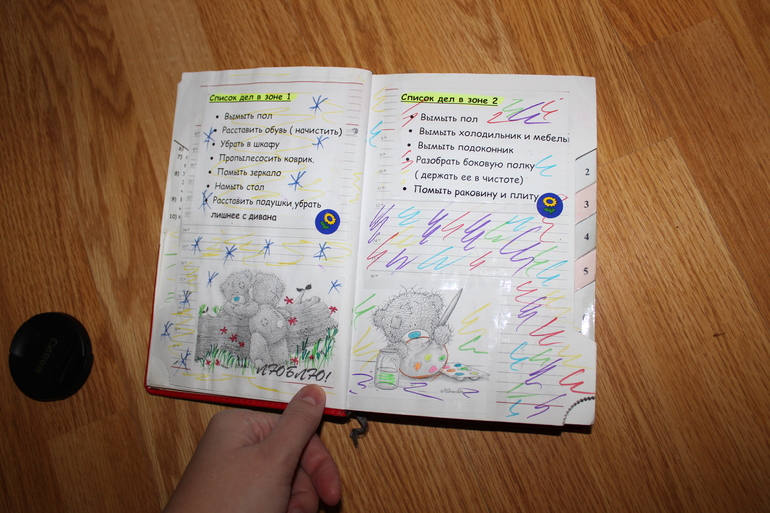 Список дел в зоне 1
Вымыть пол
Расставить обувь ( начистить)
Убрать в шкафу
Пропылесосить коврик.
Помыть зеркало
Намыть стол
Расставить подушки,убрать
лишнее с дивана
ЛЮБЛЮ!
Список дел в зоне 2
Вымыть пол
Вымыть холодильник и мебель
Вымыть подоконник
Разобрать боковую полку
( держать ее в чистоте)
Помыть раковину и плиту
2
3
4
5
6)
7)
8)
9)
10)